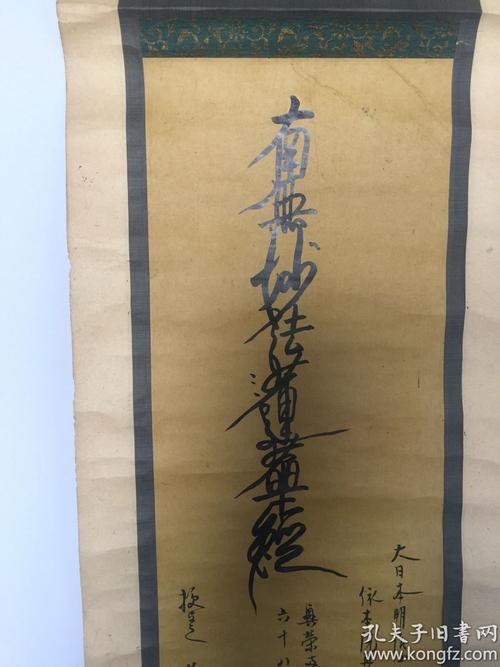 南無妙法蓮華經
大日本明
依本
六十八
授与之
孔夫子旧书网
www.kongfz.com